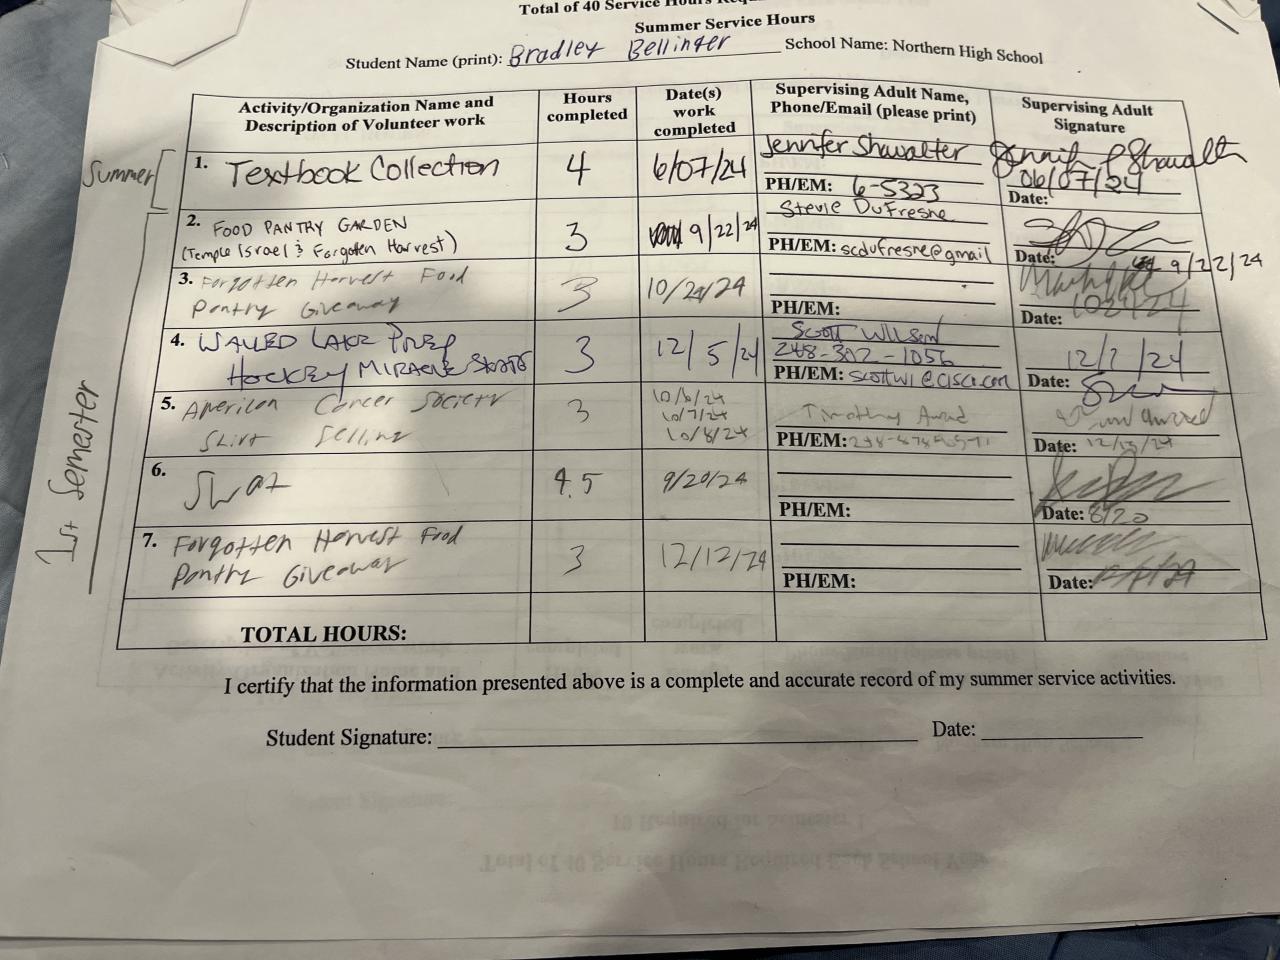 Total of 40 Service Hours
Summer Service Hours
Student Name (print): Bradley Bellinger School Name: Northern High School
Activity/Organization Name and Description of Volunteer work
Hours completed
Date(s) work completed
Supervising Adult Name, Phone/Email (please print)
Supervising Adult Signature
Summer
1. Textbook Collection
4
6/07/24
Jennifer Shawalter
PH/EM: 6-5323
Jennifer Shawalter
06/07/24
Date:
1st Semester
2. FOOD PANTRY GARDEN
(Temple Israel & Forgotten Harvest)
3
9/22/24
Stevie DuFresne
PH/EM: scdufresne@gmail
Date: 9/22/24
3. Forgotten Harvest Food
Pantry Giveaway
3
10/24/24
PH/EM:
Date: 102424
4. WALLED LAKE PREP
HOCKEY MIRACLE SKATE
3
12/5/24
Scott Wilson
248-302-1056
PH/EM:
12/7/24
Date:
5. American Cancer Society
Shirt Selling
3
10/6/24
10/7/24
10/8/24
Timothy
PH/EM:
Date: 12/13/24
6. Swat
4.5
9/20/24
PH/EM:
Date: 8/20
7. Forgotten Harvest Food
Pantry Giveaway
3
12/12/24
PH/EM:
Date:
TOTAL HOURS:
I certify that the information presented above is a complete and accurate record of my summer service activities.
Student Signature: Date: